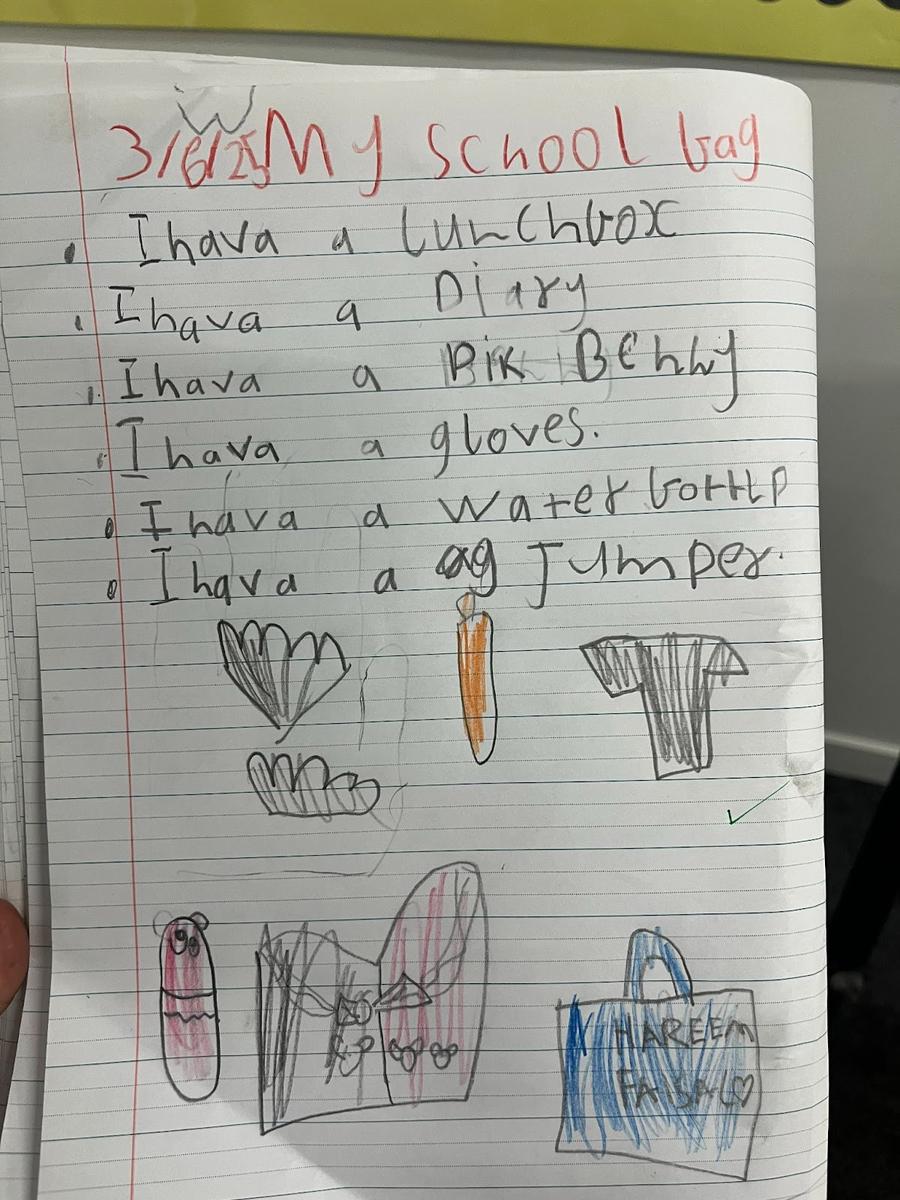 W
3/6/25 My school bag
I hava a lunchbox
I hava a Diary
I hava a Pik BEnny
I hava a gloves.
I hava a water bottlp
I hava a ag Jumper.
HAREEM
FAISAL♡